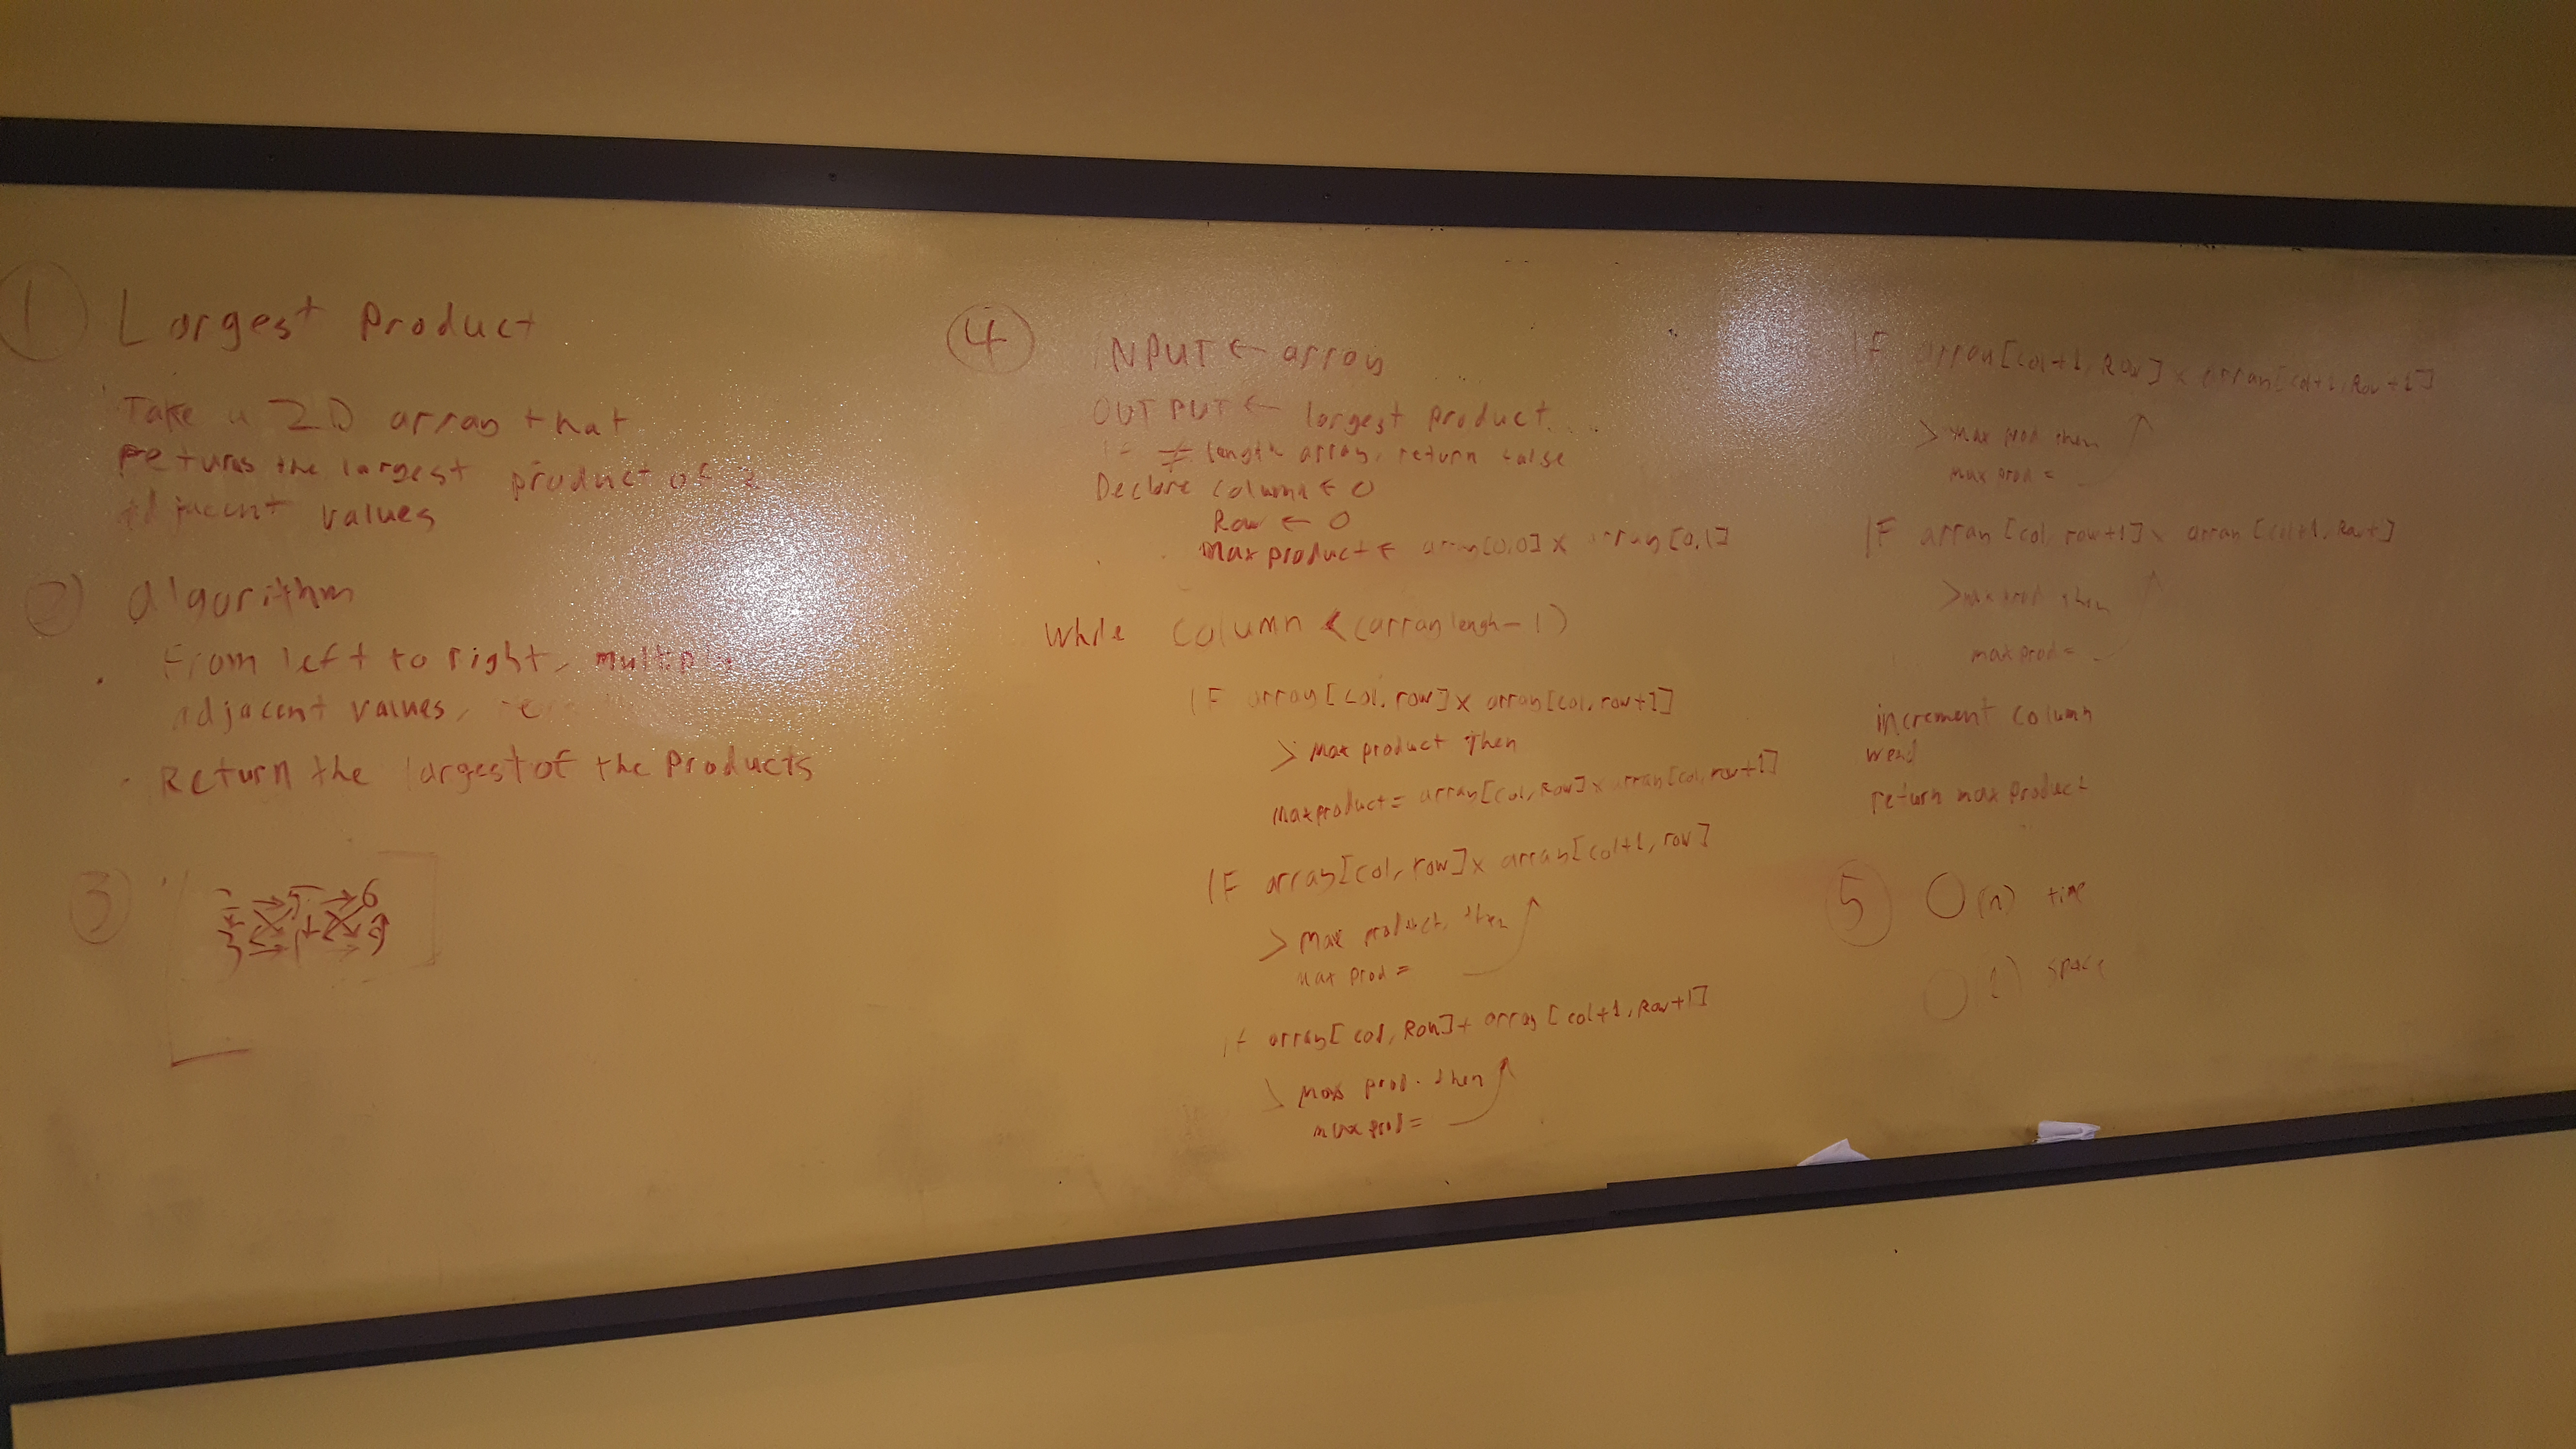 1 Largest Product
Take a 2D array that
returns the largest product of 2
adjacent values
2) algorithm
From left to right, multiply
adjacent values,
Return the largest of the Products
3
5 6
3 1 9
4 INPUT ← array
OUTPUT ← largest product.
IF ≠ length array, return false
Declare column ← 0
Row ← 0
Max product ← array[0,0] x array[0,1]
While column < (array lengh - 1)
IF array[col, row] x array[col, row+1]
> Max product Then
Maxproduct = array[col, Row] x array[col, row+1]
IF array[col, row] x array[col+1, row]
> Max product, then
max prod =
if array[col, Row] + array[col+1, Row+1]
> Max prod. then
max prod =
IF array[col+1, Row] x array[col+1, Row+1]
> Max prod then
max prod =
IF array[col, row+1] x array[col+1, Row]
> max prod then
max prod =
increment column
wend
return max product
5 O(n) time
O(1) space